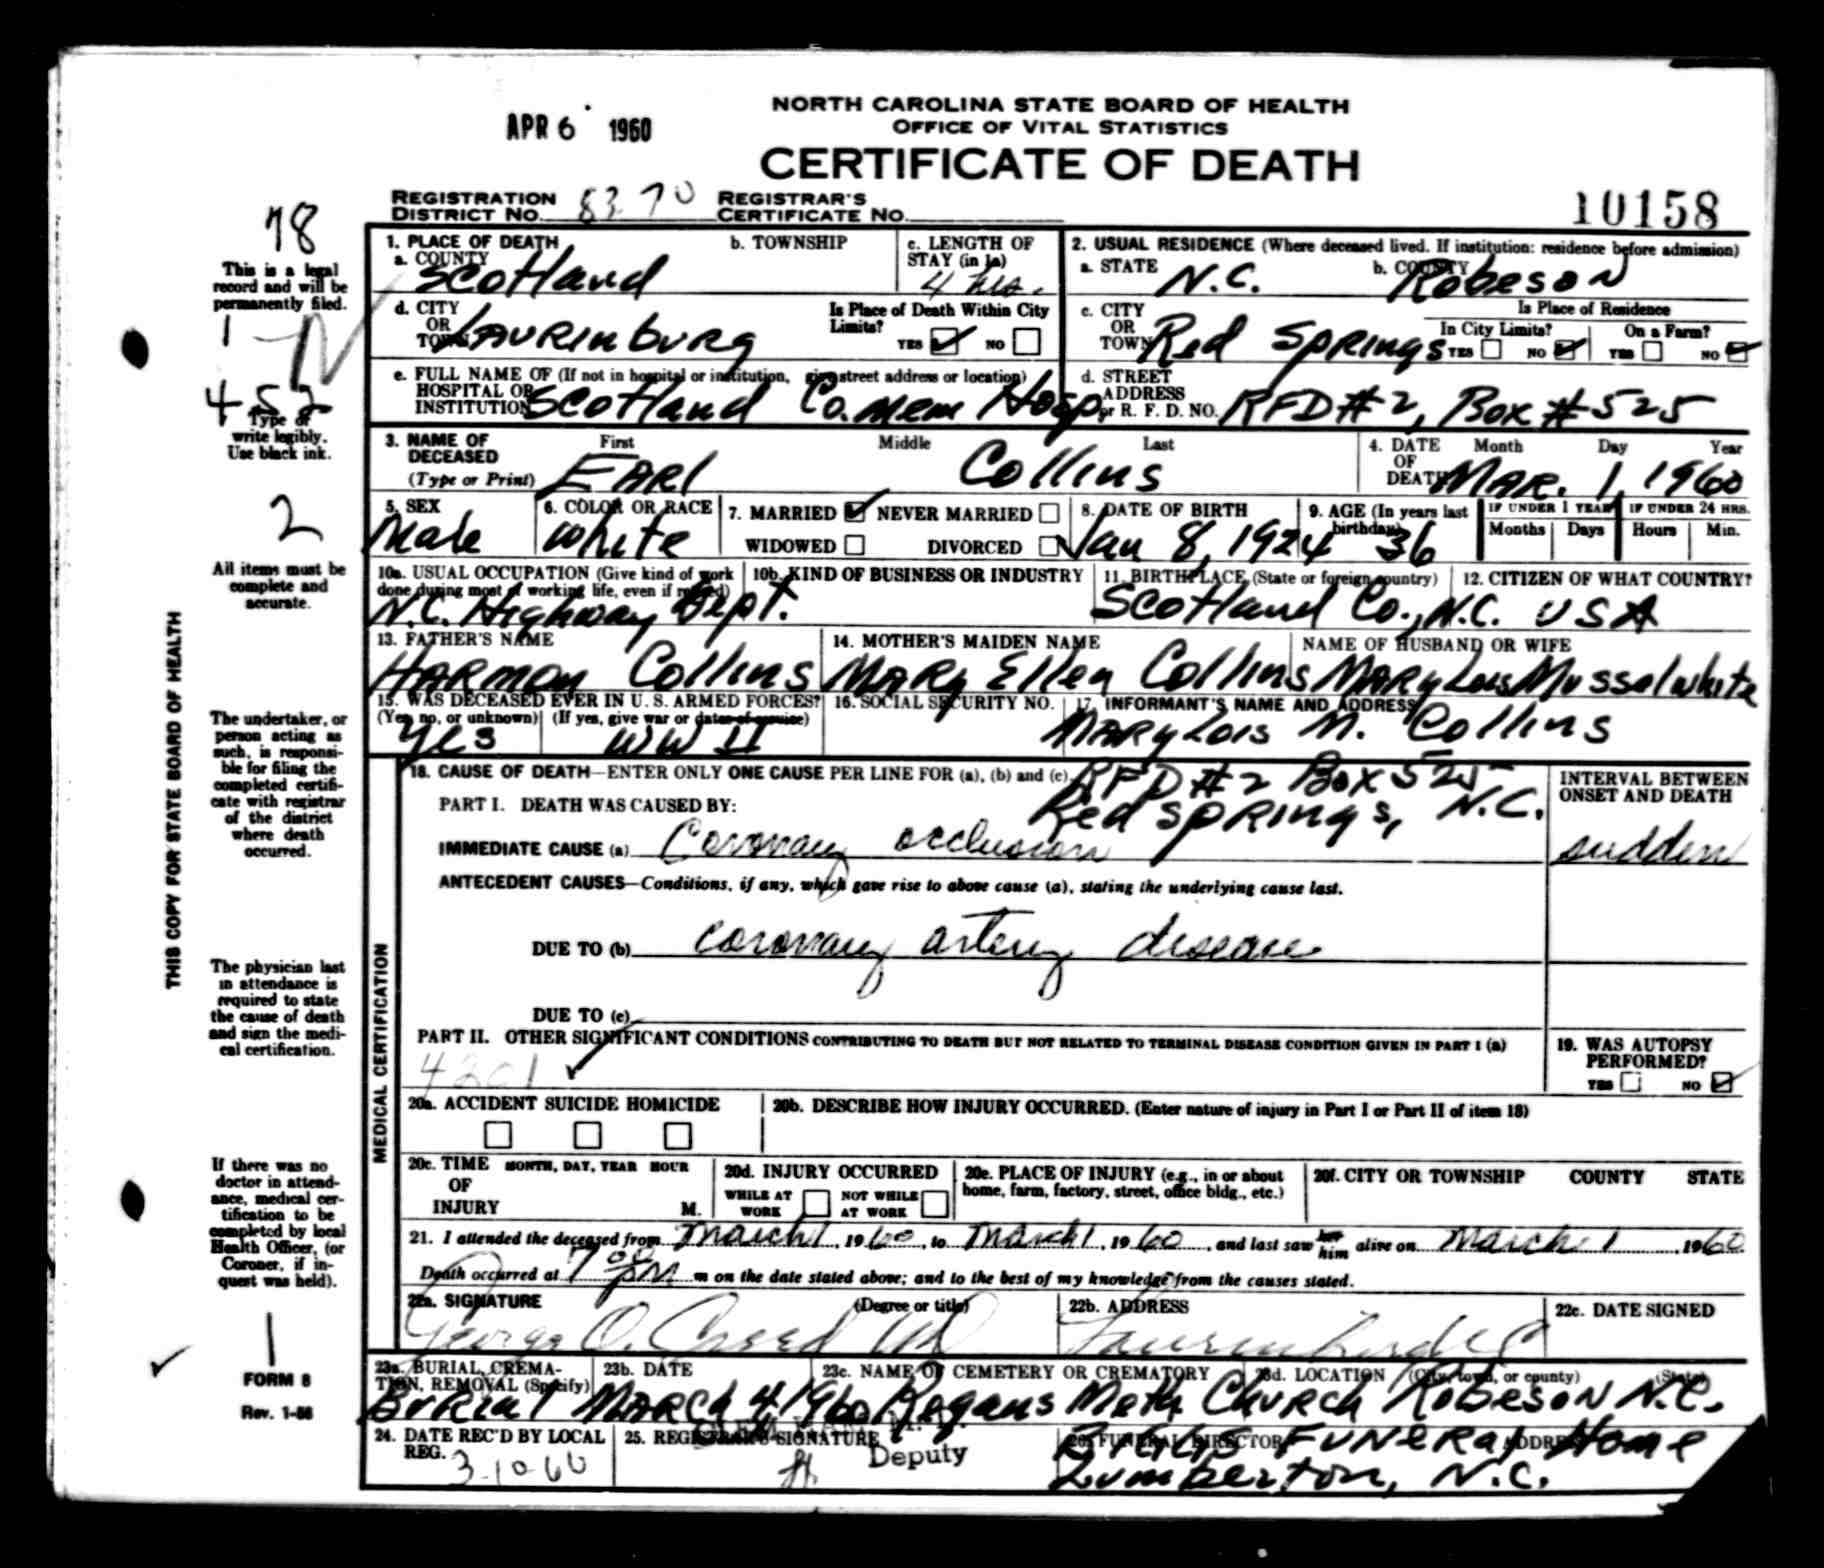 NORTH CAROLINA STATE BOARD OF HEALTH
OFFICE OF VITAL STATISTICS
APR 6 1960
CERTIFICATE OF DEATH
REGISTRATION DISTRICT NO. 8370 REGISTRAR'S CERTIFICATE NO.
10158
78
This is a legal record and will be permanently filed.
1
Type or write legibly. Use black ink.
2
All items must be complete and accurate.
THIS COPY FOR STATE BOARD OF HEALTH
The undertaker, or person acting as such, is responsible for filing the completed certificate with registrar of the district where death occurred.
The physician last in attendance is required to state the cause of death and sign the medical certification.
If there was no doctor in attendance, medical certification to be completed by local Health Officer, (or Coroner, if inquest was held).
1
FORM 8
Rev. 1-56
1. PLACE OF DEATH
a. COUNTY Scotland
b. TOWNSHIP
c. LENGTH OF STAY (in 1a) 4 hrs.
2. USUAL RESIDENCE (Where deceased lived. If institution: residence before admission)
a. STATE N.C. b. COUNTY Robeson
d. CITY OR TOWN Laurinburg
Is Place of Death Within City Limits? YES NO
c. CITY OR TOWN Red Springs
Is Place of Residence
In City Limits? YES NO On a Farm? YES NO
e. FULL NAME OF (If not in hospital or institution, give street address or location) HOSPITAL OR INSTITUTION Scotland Co. Mem Hosp.
d. STREET ADDRESS or R. F. D. NO. RFD #2, Box #525
3. NAME OF DECEASED (Type or Print)
First Middle Last
Earl Collins
4. DATE OF DEATH Month Day Year
Mar. 1, 1960
5. SEX Male
6. COLOR OR RACE White
7. MARRIED NEVER MARRIED
WIDOWED DIVORCED
8. DATE OF BIRTH Jan 8, 1924
9. AGE (In years last birthday) 36
IF UNDER 1 YEAR Months Days
IF UNDER 24 HRS. Hours Min.
10a. USUAL OCCUPATION (Give kind of work done during most of working life, even if retired)
N.C. Highway Dept.
10b. KIND OF BUSINESS OR INDUSTRY
11. BIRTHPLACE (State or foreign country) Scotland Co., N.C.
12. CITIZEN OF WHAT COUNTRY? USA
13. FATHER'S NAME Harmon Collins
14. MOTHER'S MAIDEN NAME Mary Ellen Collins
NAME OF HUSBAND OR WIFE Mary Lois Musselwhite
15. WAS DECEASED EVER IN U. S. ARMED FORCES?
(Yes, no, or unknown) (If yes, give war or dates of service)
Yes WW II
16. SOCIAL SECURITY NO.
17. INFORMANT'S NAME AND ADDRESS
Mary Lois M. Collins
RFD #2 Box 525
Red Springs, N.C.
MEDICAL CERTIFICATION
18. CAUSE OF DEATH—ENTER ONLY ONE CAUSE PER LINE FOR (a), (b) and (c).
PART I. DEATH WAS CAUSED BY:
INTERVAL BETWEEN ONSET AND DEATH
IMMEDIATE CAUSE (a) Coronary occlusion sudden
ANTECEDENT CAUSES—Conditions, if any, which gave rise to above cause (a), stating the underlying cause last.
DUE TO (b) coronary artery disease
DUE TO (c)
PART II. OTHER SIGNIFICANT CONDITIONS CONTRIBUTING TO DEATH BUT NOT RELATED TO TERMINAL DISEASE CONDITION GIVEN IN PART I (a)
4201
19. WAS AUTOPSY PERFORMED?
YES NO
20a. ACCIDENT SUICIDE HOMICIDE
20b. DESCRIBE HOW INJURY OCCURRED. (Enter nature of injury in Part I or Part II of item 18)
20c. TIME OF INJURY MONTH, DAY, YEAR HOUR M.
20d. INJURY OCCURRED
WHILE AT WORK NOT WHILE AT WORK
20e. PLACE OF INJURY (e.g., in or about home, farm, factory, street, office bldg., etc.)
20f. CITY OR TOWNSHIP COUNTY STATE
21. I attended the deceased from March 1, 1960, to March 1, 1960, and last saw her him alive on March 1 1960
Death occurred at 7 00 pm m on the date stated above; and to the best of my knowledge from the causes stated.
22a. SIGNATURE (Degree or title)
22b. ADDRESS
22c. DATE SIGNED
George O. Creed MD
23a. BURIAL, CREMATION, REMOVAL (Specify) Burial
23b. DATE March 4 1960
23c. NAME OF CEMETERY OR CREMATORY Regans Meth Church
23d. LOCATION (City, town, or county) (State) Robeson N.C.
24. DATE REC'D BY LOCAL REG. 3-10-60
25. REGISTRAR'S SIGNATURE
Deputy
26. FUNERAL DIRECTOR ADDRESS
Biggs Funeral Home
Lumberton, N.C.